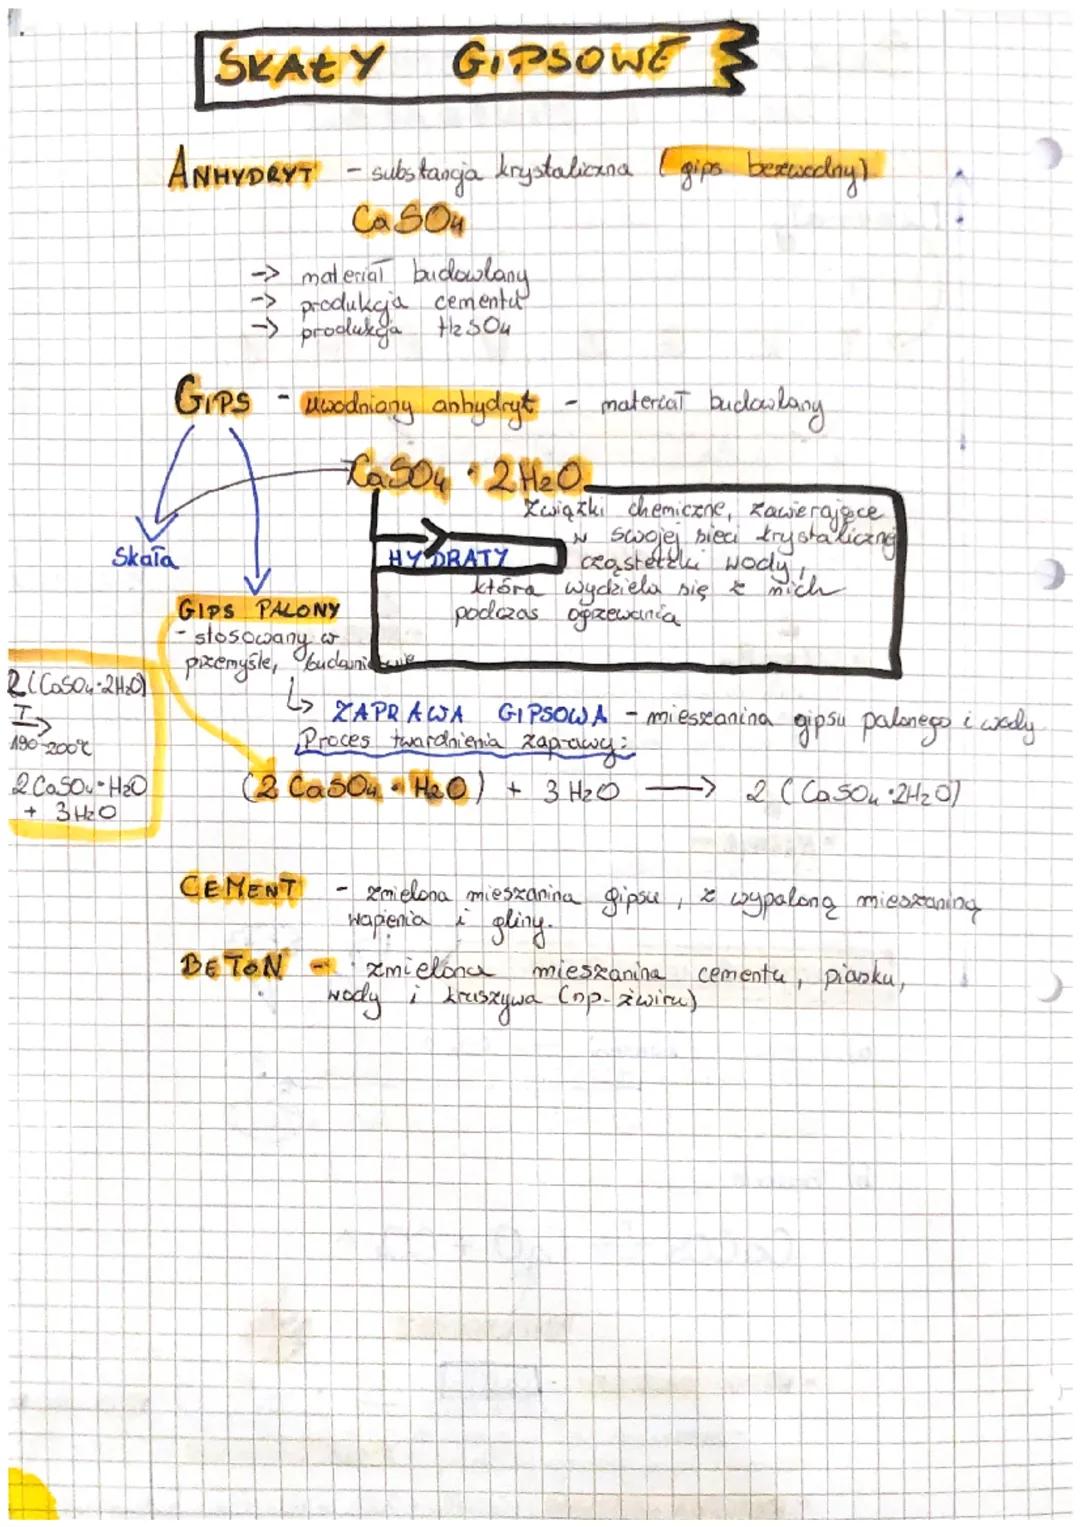 SKAŁY GIPSOWE
ANHYDRYT - substancja krystaliczna (gips bezwodny)
CaSO4
-> materiał budowlany
-> produkcja cementu
-> produkcja H2SO4
GIPS - uwodniony anhydryt - materiał budowlany
CaSO4 · 2H2O
Związki chemiczne, zawierające
w swojej sieci krystalicznej
HYDRATY cząsteczki wody,
która wydziela się z nich
podczas ogrzewania
Skała
GIPS PALONY
- stosowany w
przemyśle, budownictwie
↳ ZAPRAWA GIPSOWA - mieszanina gipsu palonego i wody
Proces twardnienia zaprawy:
(2 CaSO4 · H2O) + 3 H2O -> 2 (CaSO4 · 2H2O)
2(CaSO4·2H2O)
T ->
190-200°C
2 CaSO4·H2O
+ 3H2O
CEMENT - zmielona mieszanina gipsu, z wypaloną mieszaniną
wapienia i gliny.
BETON - zmielona mieszanina cementu, piasku,
wody i kruszywa (np. żwiru)